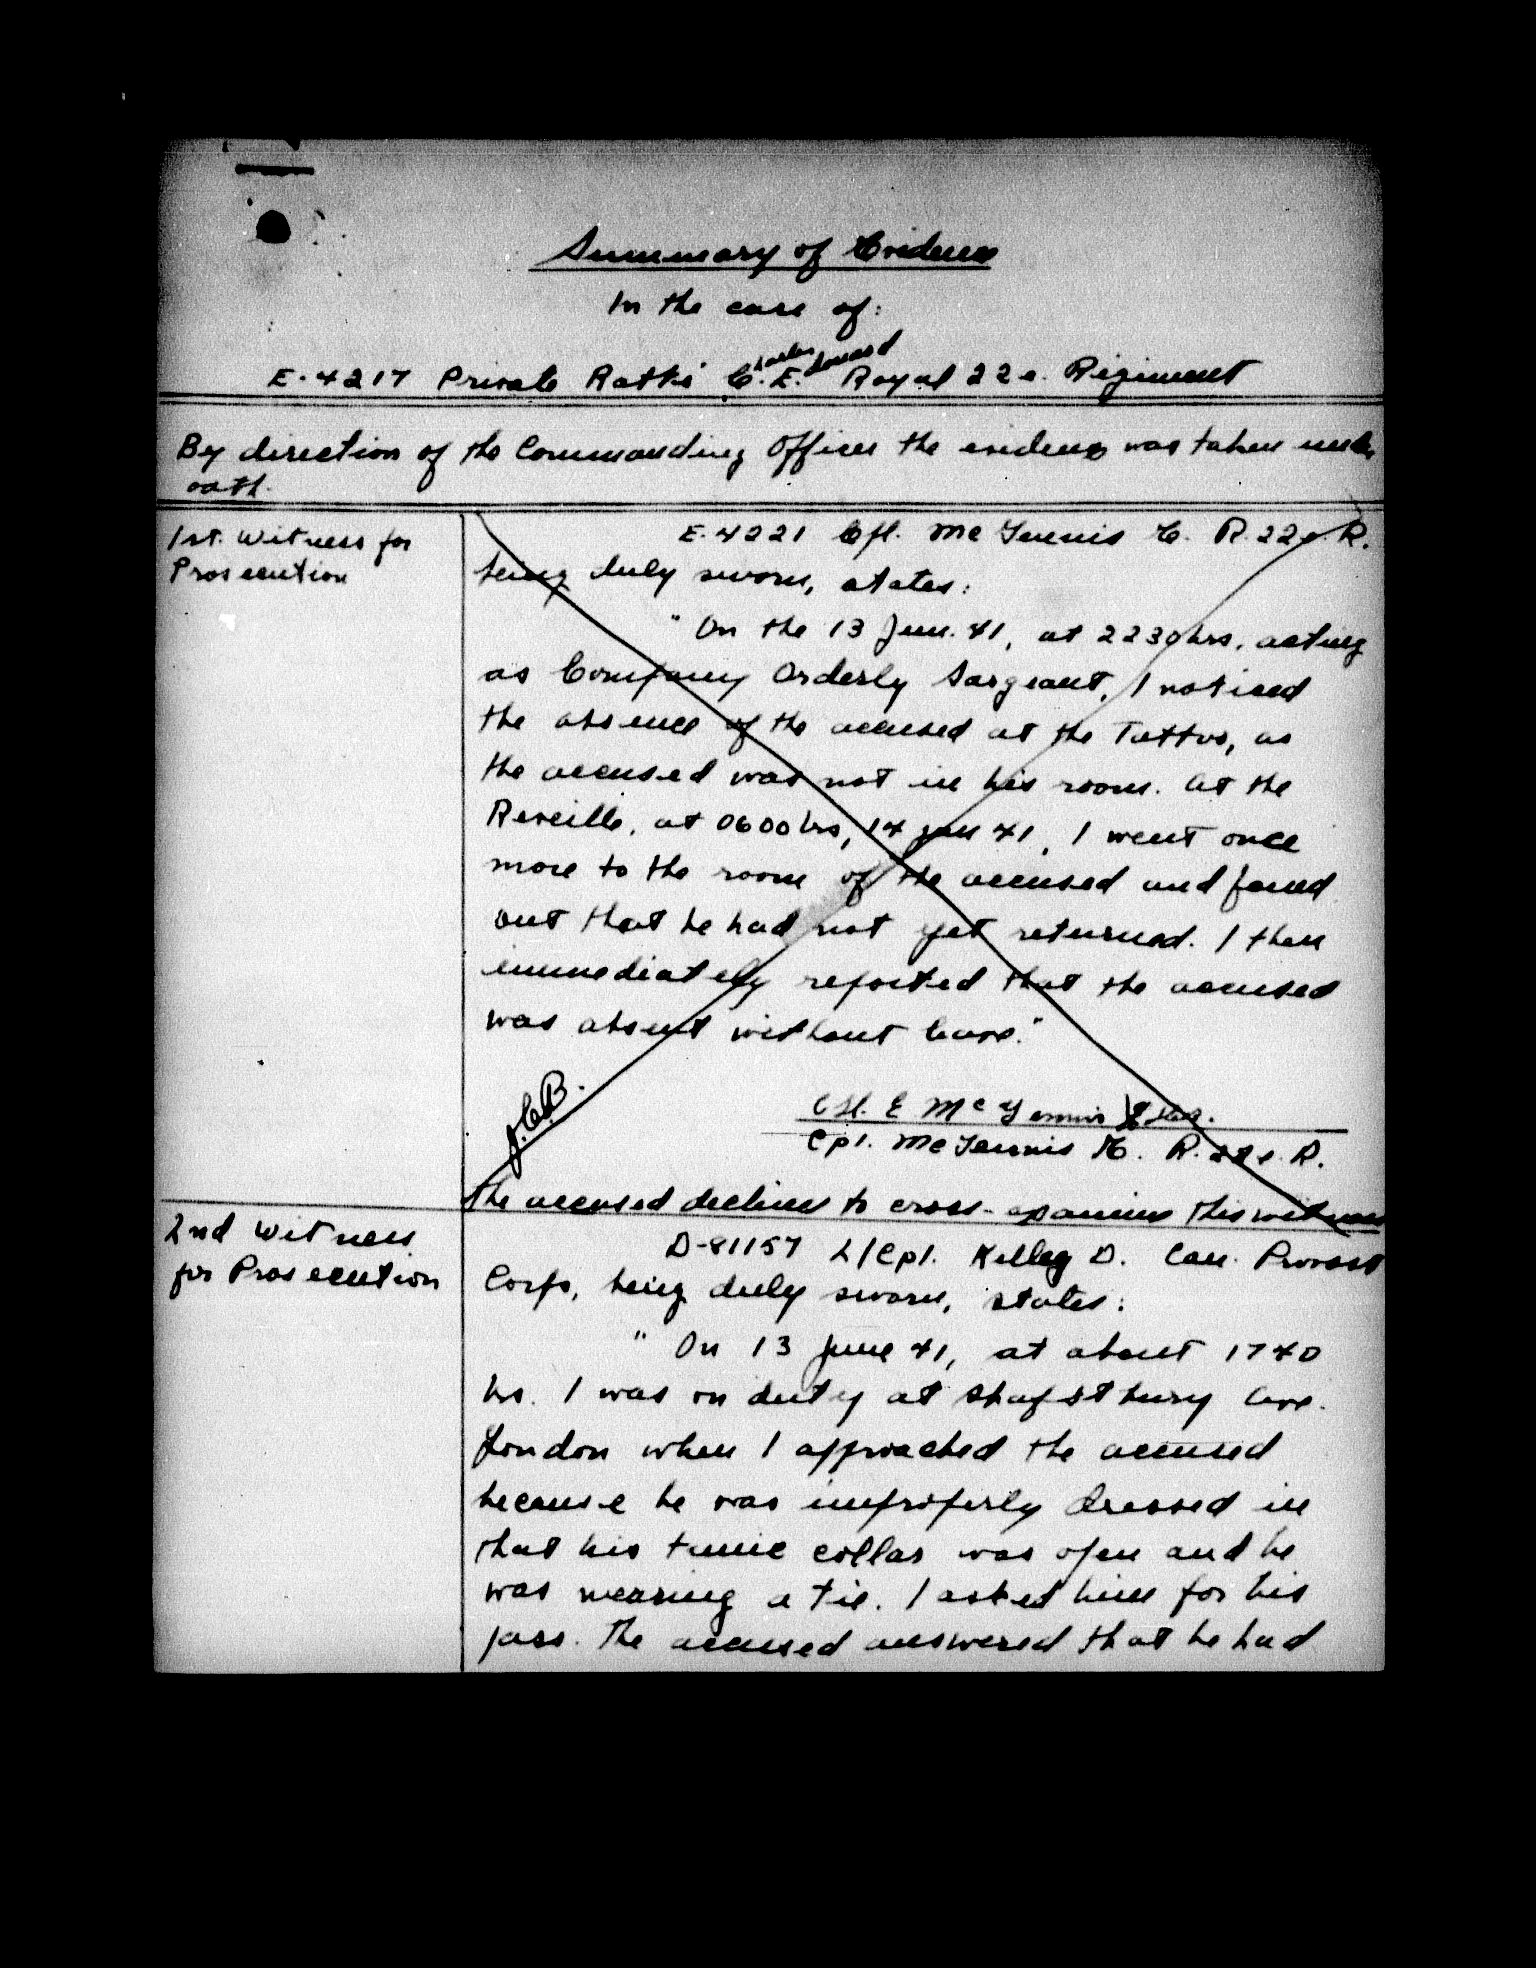 Summary of Evidence
In the case of:
E-4217 Private Rattś Charles E. Edouard Royal 22e. Regiment
By direction of the Commanding Officer the evidence was taken under
oath.
1st. Witness for
Prosecution
E-4221 Cpl. McGennis E. R. 22e R.
being duly sworn, states:
"On the 13 Jun. 41, at 2230 hrs. acting
as Company Orderly Sargeant, I noticed
the absence of the accused at the Tattoo, as
the accused was not in his room. At the
Reveille, at 0600 hrs, 14 Jun 41, I went once
more to the room of the accused and found
out that he had not yet returned. I then
immediately reported that the accused
was absent without leave."
J.C.B.
Cpl. E McGennis
Cpl. McGennis E. R. 22e. R.
The accused declines to cross-examine this witness
2nd Witness
for Prosecution
D-81157 L/Cpl. Kelley D. Can. Provost
Corps, being duly sworn, states:
"On 13 June 41, at about 1740
hrs. I was on duty at Shafstbury Ave.
London when I approached the accused
because he was improperly dressed in
that his tunic collar was open and he
was wearing a tie. I asked him for his
pass. The accused answered that he had